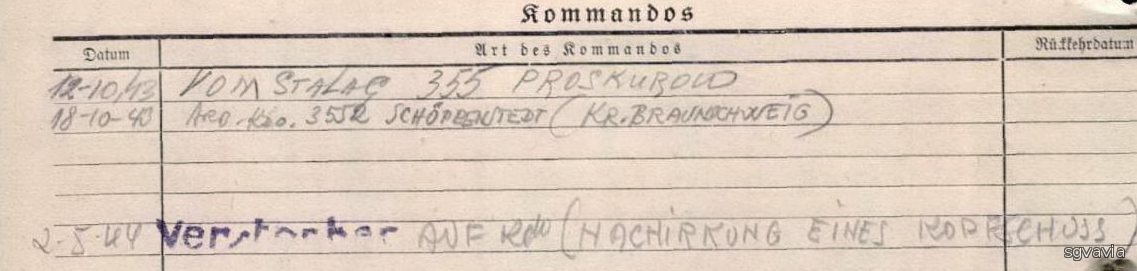 Kommandos
Datum Art des Kommandos Rückkehrdatum
12-10/43 VOM STALAG 355 PROSKUROW
18-10-43 ARB. KDO. 3552 SCHÖPPENSTEDT (KR. BRAUNSCHWEIG)
2-5-44 Verstorben AUF Kdo (NACHIRKUNG EINES KOPFSCHUSS)
sgvavia